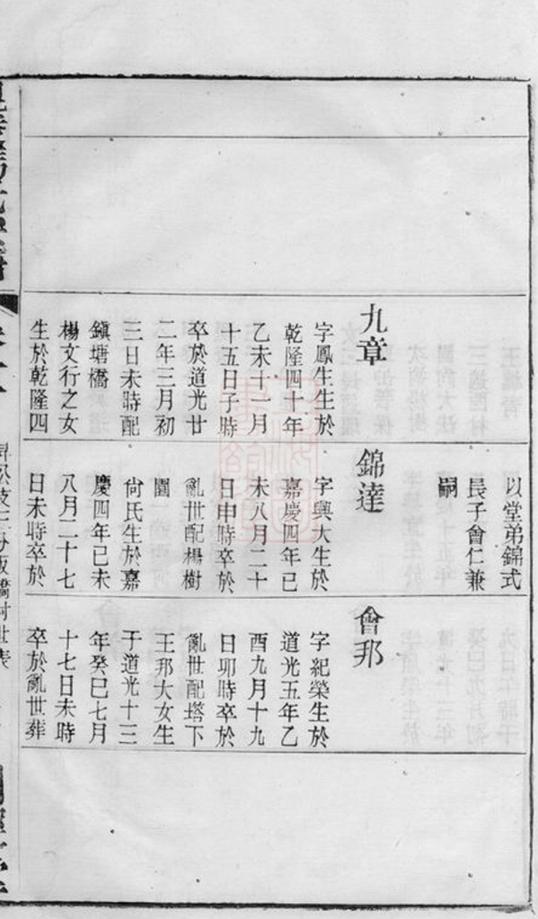 九章
字鳳生生於
乾隆四十年
乙未十一月
十五日子時
卒於道光廿
二年三月初
三日未時配
鎭塘橋
楊文行之女
生於乾隆四
以堂弟錦式
長子會仁兼
嗣
錦達
字興大生於
嘉慶四年己
未八月二十
日申時卒於
亂世配楊樹
園
尙氏生於嘉
慶四年己未
八月二十七
日未時卒於
會邦
字紀榮生於
道光五年乙
酉九月十九
日卯時卒於
亂世配塔下
王邦大女生
于道光十三
年癸巳七月
十七日未時
卒於亂世葬